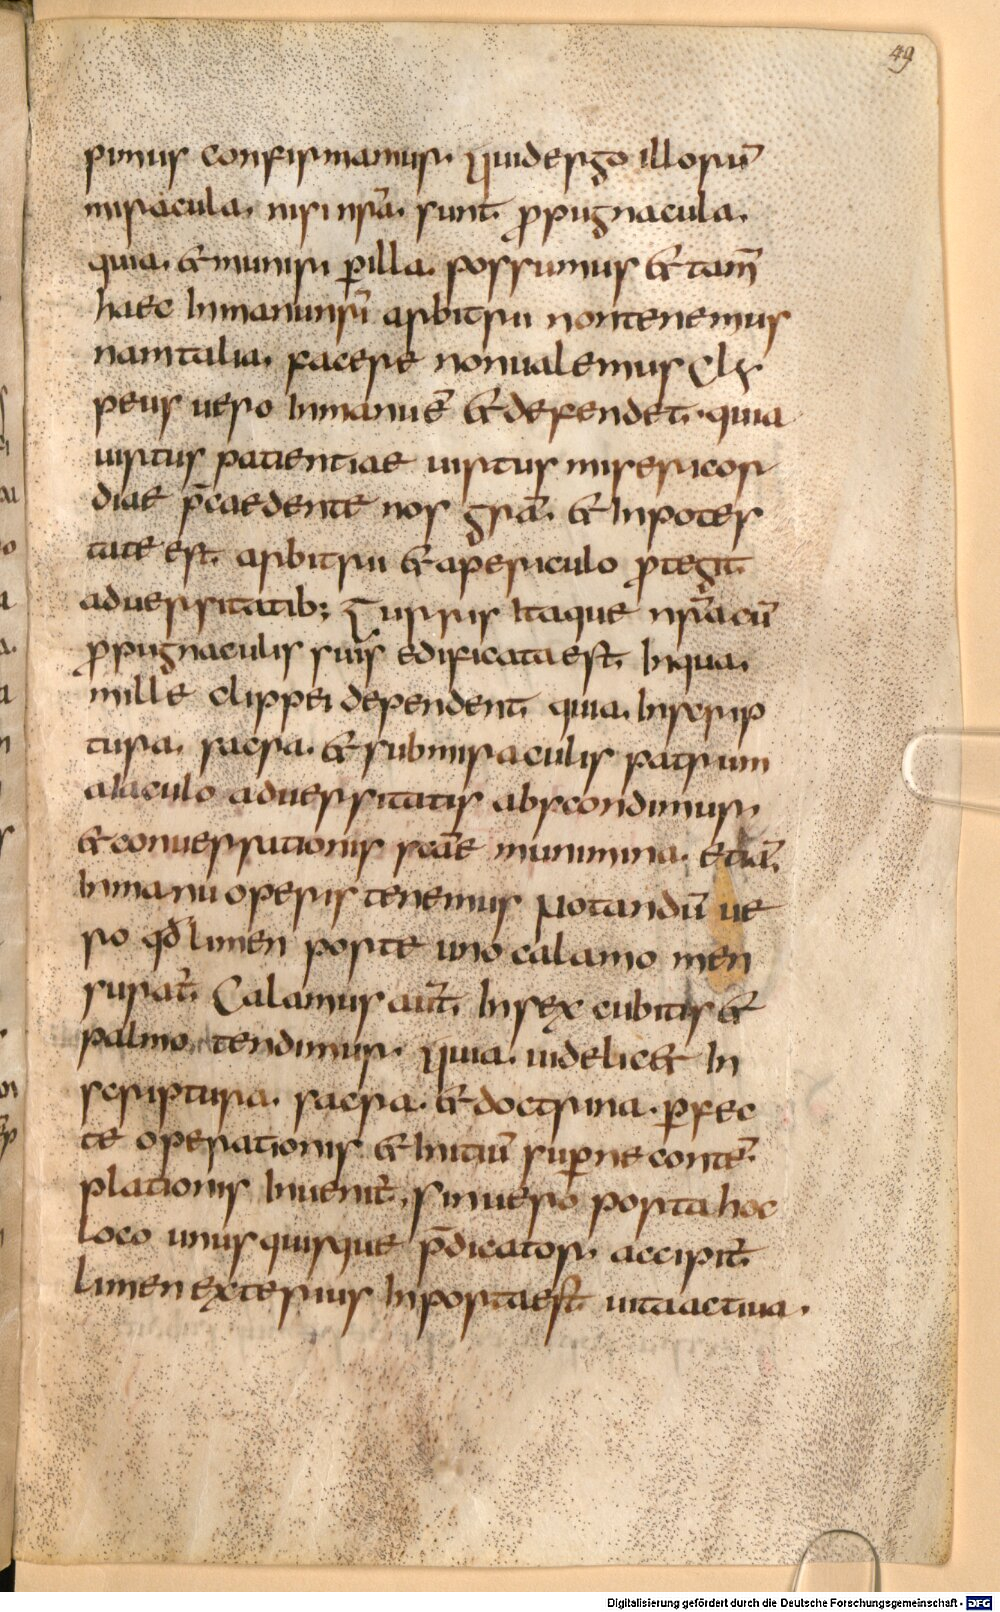 49
pimus confirmamur. Quid ergo illorū
miracula. nisi nr̄a. sunt. ꝓpugnacula.
quia. & muniri ꝑ illa. possumus & tam̄
haec In manu nr̄i arbitrii non tenemus
nam talia. facere non ualemus Cly
peus uero In manu ē & defendet. quia
uirtus patientiae uirtus misericor
diae p̄caedente nos gr̄a. & In potes
tate est. arbitrii & a periculo ꝓtegit.
aduersitatib; Turris Itaque nr̄a cū
ꝓpugnaculis suis edificata est. In qua.
mille clippei dependent. quia. In scrip
tura. sacra. & sub miraculis patrum
a iaculo aduersitatis abscondimur.
& conuersationis sc̄ae munimina. etiā.
In manu operis tenemus Notandū ue
ro qd̄ limen porte uno calamo men
surat̄. Calamus aut̄. In sex cubitis &
palmo tendimur. Quia. uidelic& In
scriptura. sacra. & doctrina. ꝑfec
te operationis & Initiū suꝑne contē
plationis Inuenit̄. Sin uero porta hoc
loco unusquisque p̄dicator. accipit̄
limen exterius In porta est. uita actiua.
Digitalisierung gefördert durch die Deutsche Forschungsgemeinschaft - DFG